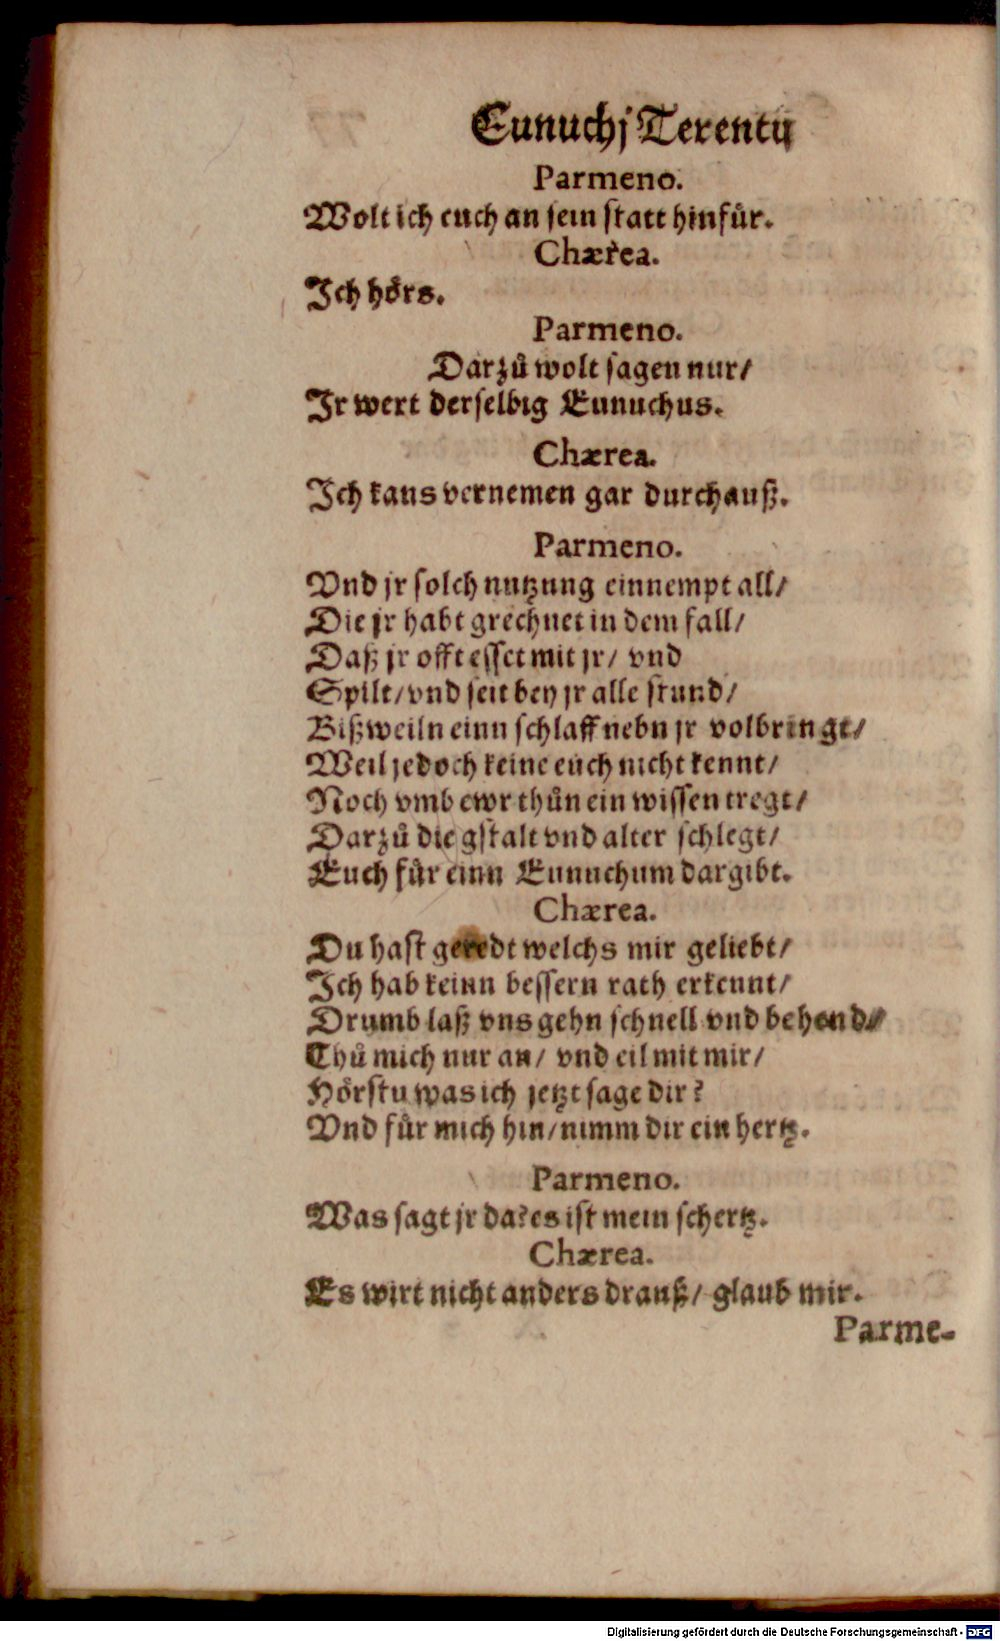 Eunuchj Terentij
Parmeno.
Wolt ich euch an sein statt hinfuͤr.
Chærea.
Ich hoͤrs.
Parmeno.
Darzuͦ wolt sagen nur/
Ir wert derselbig Eunuchus.
Chærea.
Ich kans vernemen gar durchauß.
Parmeno.
Vnd jr solch nutzung einnempt all/
Die jr habt grechnet in dem fall/
Daß jr offt esset mit jr/ vnd
Spilt/ vnd seit bey jr alle stund/
Bißweiln einn schlaff nebn jr volbringt/
Weil jedoch keine euch nicht kennt/
Noch vmb ewr thuͦn ein wissen tregt/
Darzuͦ die gstalt vnd alter schlegt/
Euch fuͤr einn Eunuchum dargibt.
Chærea.
Du hast geredt welchs mir geliebt/
Ich hab keinn bessern rath erkennt/
Drumb laß vns gehn schnell vnd behend/
Thuͦ mich nur an/ vnd eil mit mir/
Hoͤrstu was ich jetzt sage dir?
Vnd fuͤr mich hin/ nimm dir ein hertz.
Parmeno.
Was sagt jr da? es ist mein schertz.
Chærea.
Es wirt nicht anders drauß/ glaub mir.
Parme-
Digitalisierung gefördert durch die Deutsche Forschungsgemeinschaft - DFG